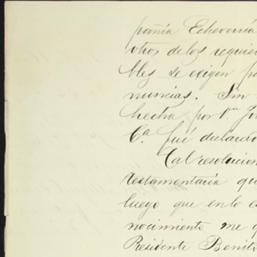 pañía Echeverría
otros de los requisi
bles se exigen pa
nuncias. Sin
hecha por
Cª fué declarad
Tal resolucion
testamentaría qu
luego que en lo es
nocimiento me q
Presidente Benito